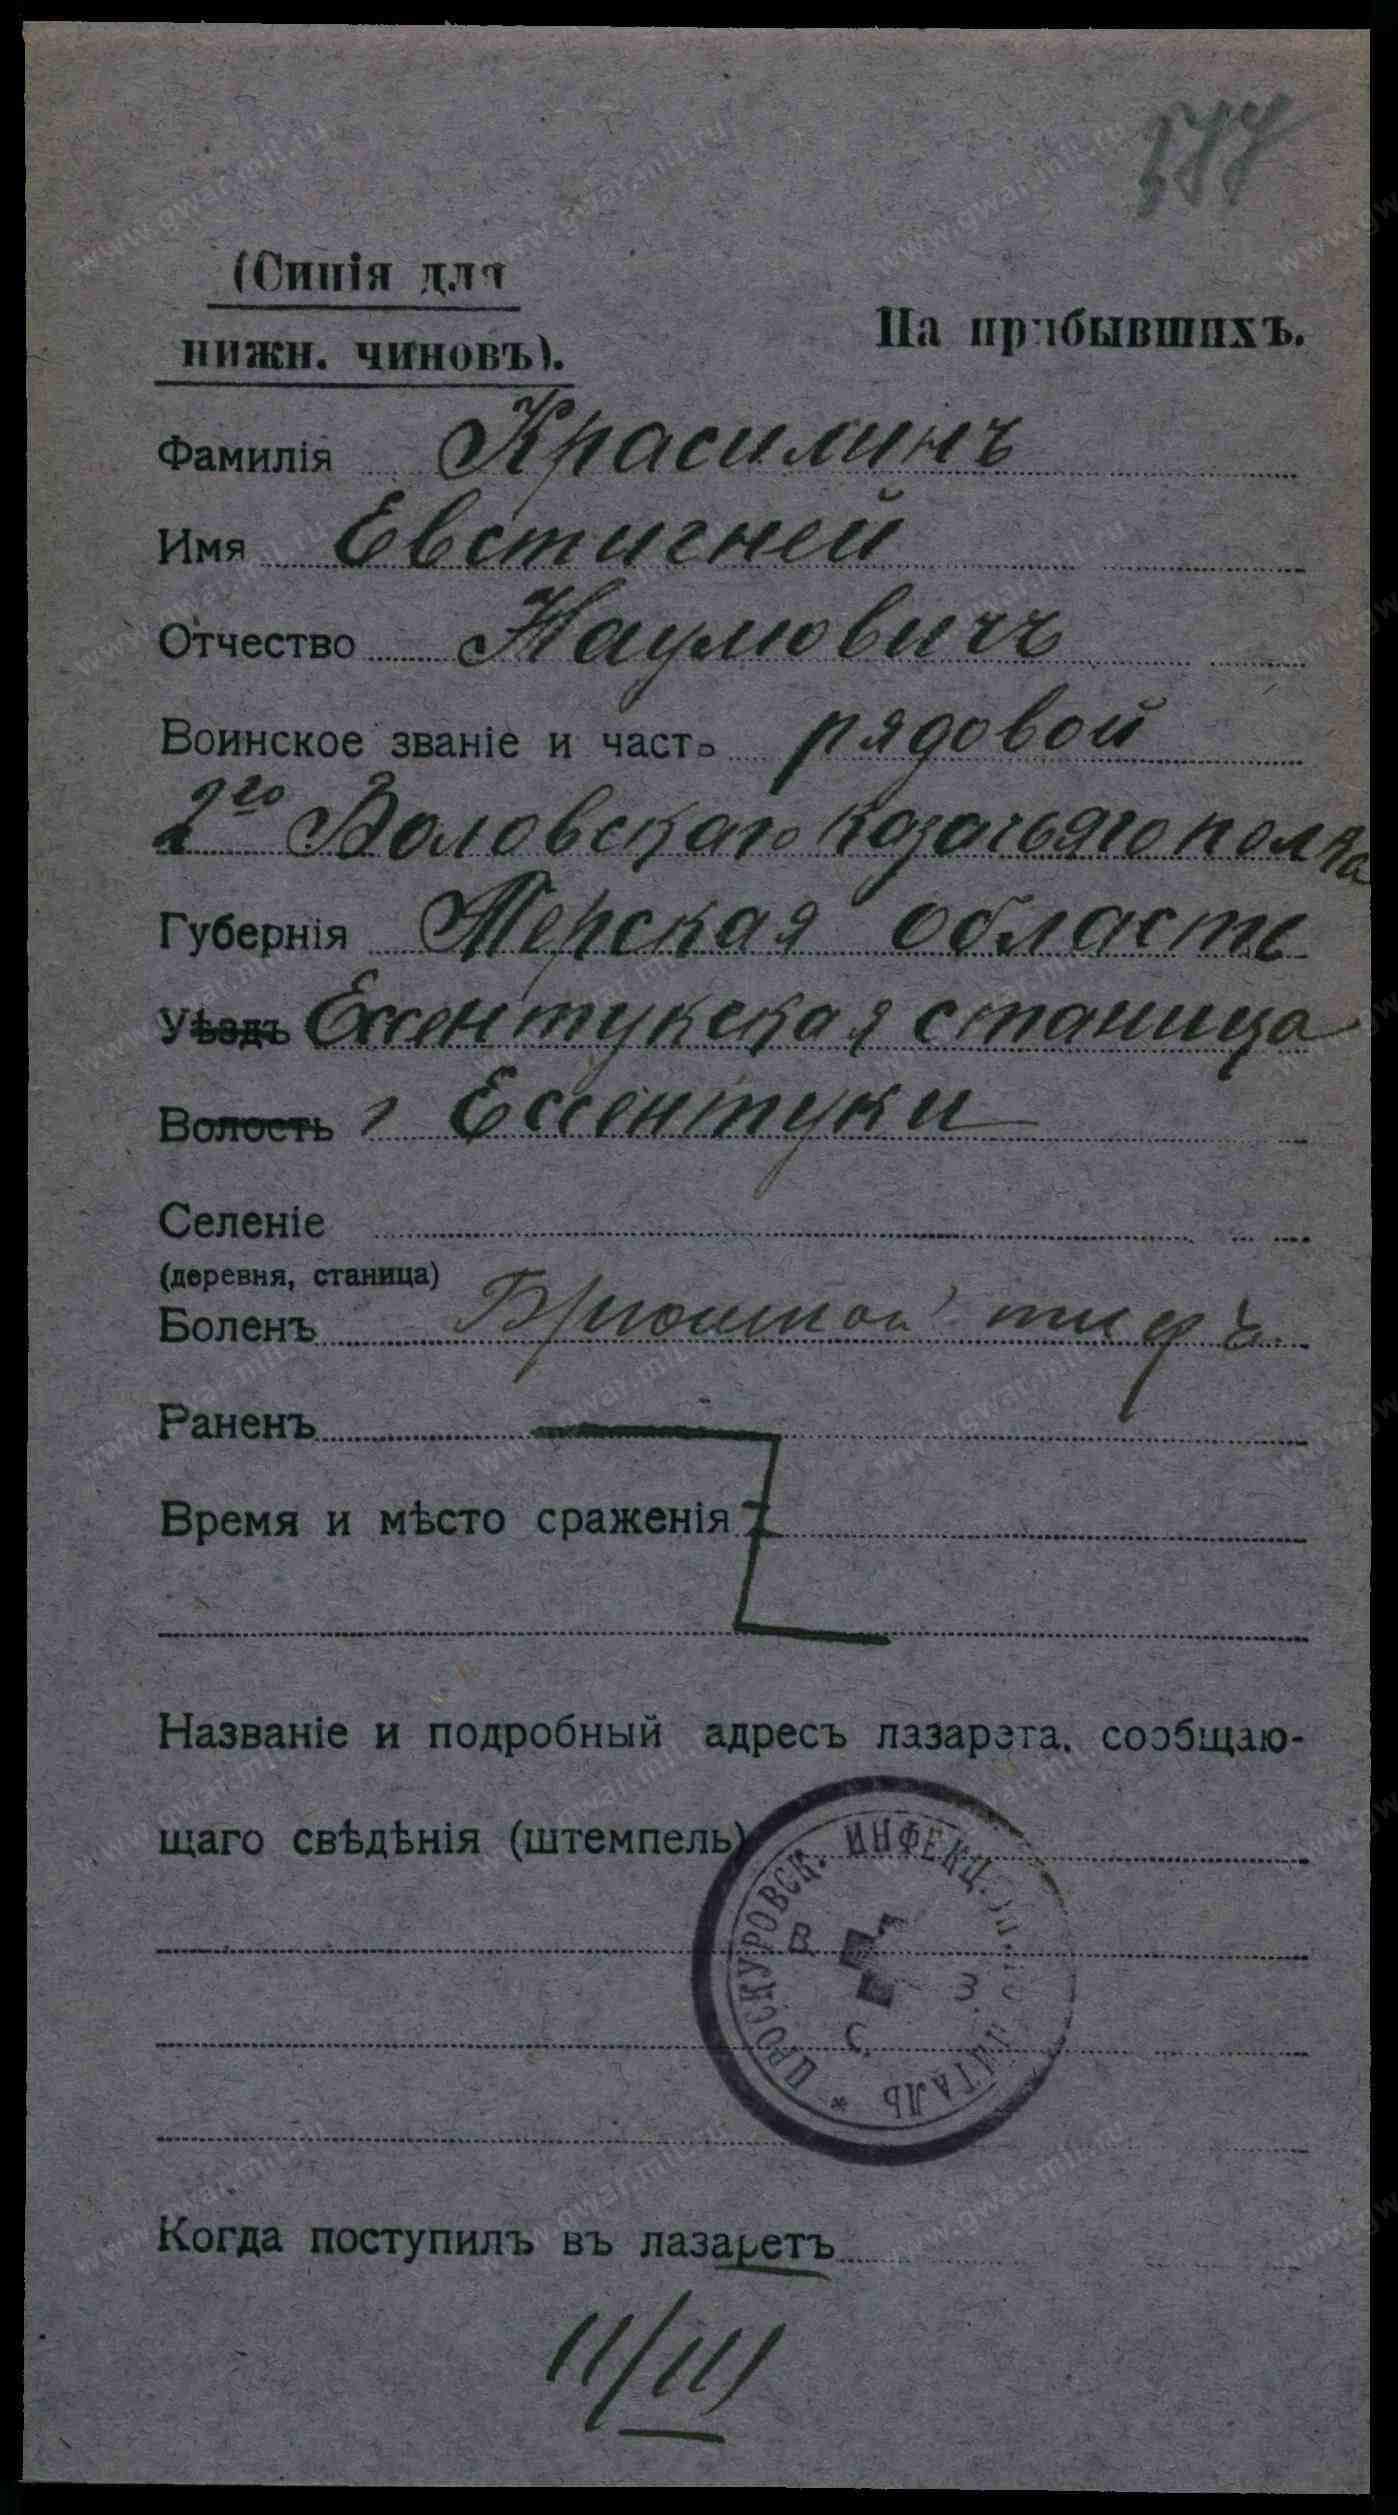 577
(Синія для
На прибывшихъ.
нижн. чиновъ).
Фамилія Красилинъ
Имя Евстигней
Отчество Наумовичъ
Воинское званіе и часть рядовой
2го Воловскаго казачьяго полка
Губернія Терская область
Уѣздъ Ессентукская станица
Волость г Ессентуки
Селеніе
(деревня, станица)
Боленъ Брюшной тифъ
Раненъ
Время и мѣсто сраженія
Названіе и подробный адресъ лазарета, сообщаю-
щаго свѣдѣнія (штемпель)
* ПРОСКУРОВСК. ИНФЕКЦ. ГОСПИТАЛЬ
В. З. С.
Когда поступилъ въ лазаретъ
11/III